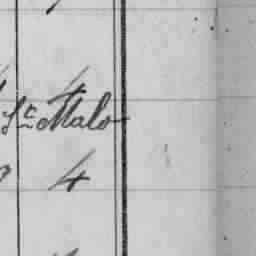 4
St Malo
4